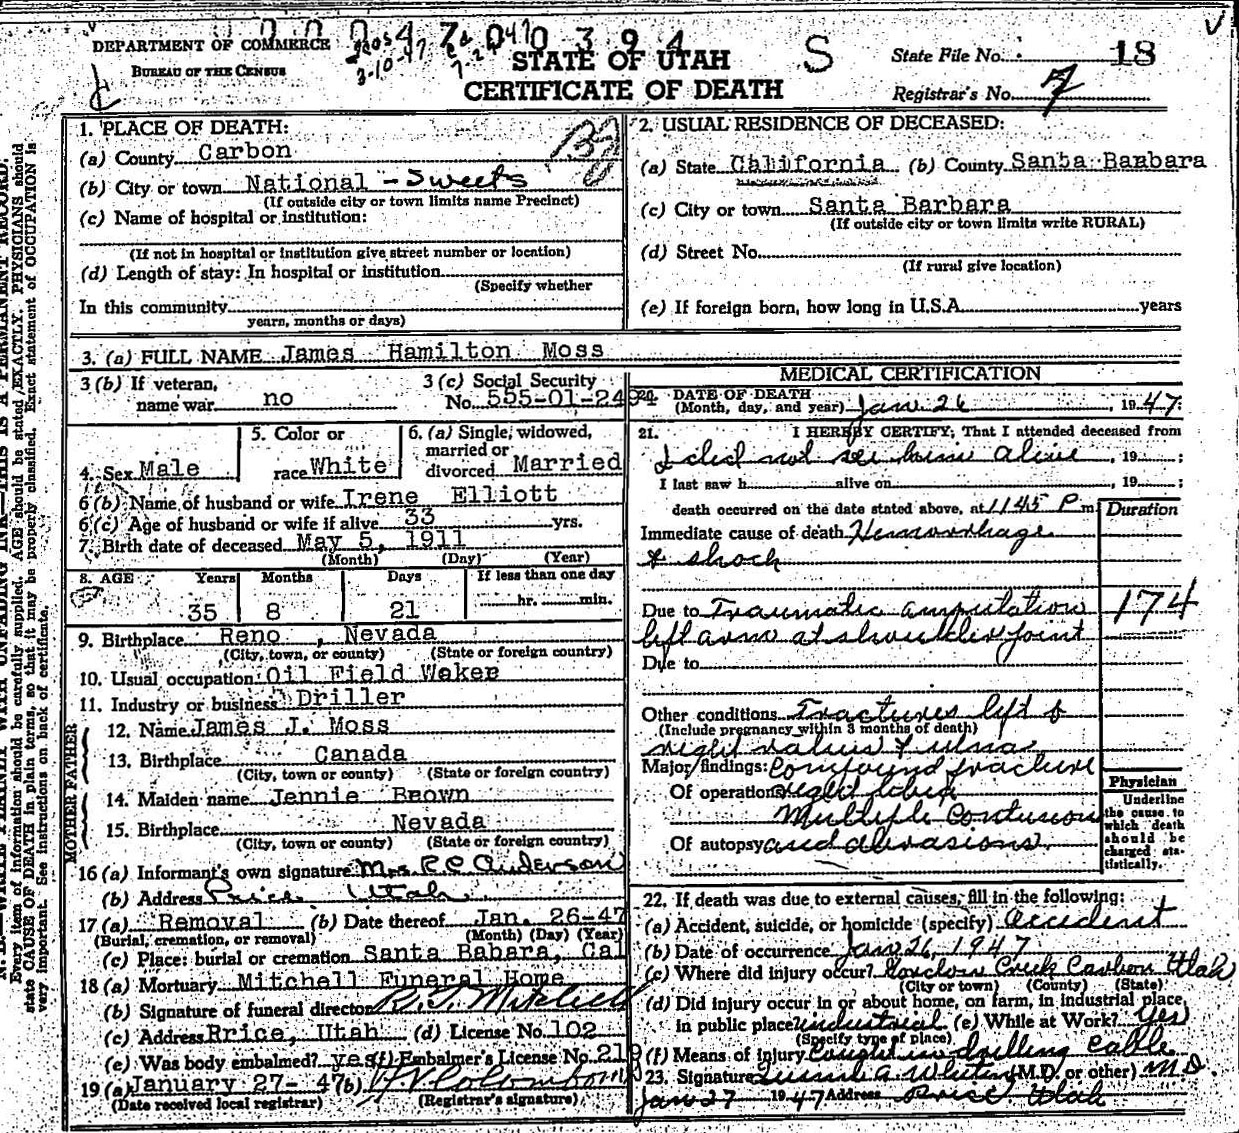 DEPARTMENT OF COMMERCE
BUREAU OF THE CENSUS
3-10-47
47 0 394
STATE OF UTAH
CERTIFICATE OF DEATH
S
State File No. 18
Registrar's No. 7
1. PLACE OF DEATH:
(a) County Carbon
(b) City or town National - Sweets
(If outside city or town limits name Precinct)
(c) Name of hospital or institution:
(If not in hospital or institution give street number or location)
(d) Length of stay: In hospital or institution
(Specify whether
In this community
years, months or days)
2. USUAL RESIDENCE OF DECEASED:
(a) State California (b) County Santa Barbara
(c) City or town Santa Barbara
(If outside city or town limits write RURAL)
(d) Street No.
(If rural give location)
(e) If foreign born, how long in U.S.A. years
3. (a) FULL NAME James Hamilton Moss
3 (b) If veteran, name war no
3 (c) Social Security No. 555-01-24
4. Sex Male
5. Color or race White
6. (a) Single, widowed, married or divorced Married
6 (b) Name of husband or wife Irene Elliott
6 (c) Age of husband or wife if alive 33 yrs.
7. Birth date of deceased May 5, 1911
(Month) (Day) (Year)
8. AGE Years Months Days If less than one day
35 8 21 hr. min.
9. Birthplace Reno, Nevada
(City, town, or county) (State or foreign country)
10. Usual occupation Oil Field Weker
11. Industry or business Driller
FATHER
12. Name James J. Moss
13. Birthplace Canada
(City, town or county) (State or foreign country)
MOTHER
14. Maiden name Jennie Brown
15. Birthplace Nevada
(City, town or county) (State or foreign country)
16 (a) Informant's own signature Mrs. R C Anderson
(b) Address Price, Utah
17 (a) Removal (b) Date thereof Jan. 26-47
(Burial, cremation, or removal) (Month) (Day) (Year)
(c) Place: burial or cremation Santa Babara, Cal
18 (a) Mortuary Mitchell Funeral Home
(b) Signature of funeral director R. T. Mitchell
(c) Address Rrice, Utah (d) License No. 102
(e) Was body embalmed? yes (f) Embalmer's License No. 219
19 (a) January 27- 47 (b)
(Date received local registrar) (Registrar's signature)
MEDICAL CERTIFICATION
20. DATE OF DEATH
(Month, day, and year) Jan. 26, 1947
21. I HEREBY CERTIFY, That I attended deceased from
I did not see him alive, 19 ;
I last saw h alive on , 19 ;
death occurred on the date stated above, at 1145 P m.
Duration
Immediate cause of death Hemorrhage
& shock
Due to Traumatic amputation 174
left arm at shoulder joint
Due to
Other conditions Fractures left &
(Include pregnancy within 3 months of death)
right radius & ulna
Major findings: Compound fracture
Of operations right tibia
Multiple Contusions
Of autopsy and abrasions.
Physician
Underline the cause to which death should be charged statistically.
22. If death was due to external causes, fill in the following:
(a) Accident, suicide, or homicide (specify) accident
(b) Date of occurrence Jan 26, 1947
(c) Where did injury occur? Gordon Creek Carbon Utah
(City or town) (County) (State)
(d) Did injury occur in or about home, on farm, in industrial place,
in public place? industrial (e) While at Work? Yes
(Specify type of place)
(f) Means of injury Caught in drilling cable
23. Signature (M.D. or other) M.D.
Jan 27 1947 Address Price Utah
N. B.—WRITE PLAINLY WITH UNFADING INK—THIS IS A PERMANENT RECORD.
Every item of information should be carefully supplied. AGE should be stated EXACTLY. PHYSICIANS should
state CAUSE OF DEATH in plain terms, so that it may be properly classified. Exact statement of OCCUPATION is
very important. See instructions on back of certificate.